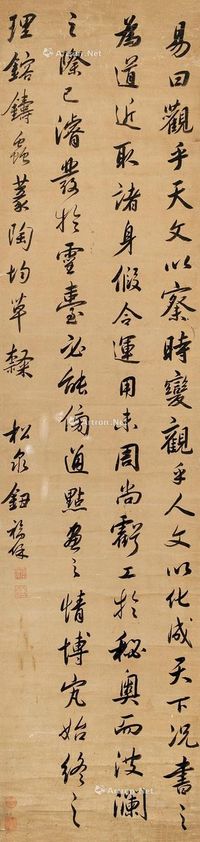 易曰觀乎天文以察時變觀乎人文以化成天下況書之
為道近取諸身假令運用未周尚虧工於秘奧而波瀾
之際已濬發於靈臺必能傍通點畫之情博究始終之
理鎔鑄蟲篆陶均草隸 松泉鈕福保